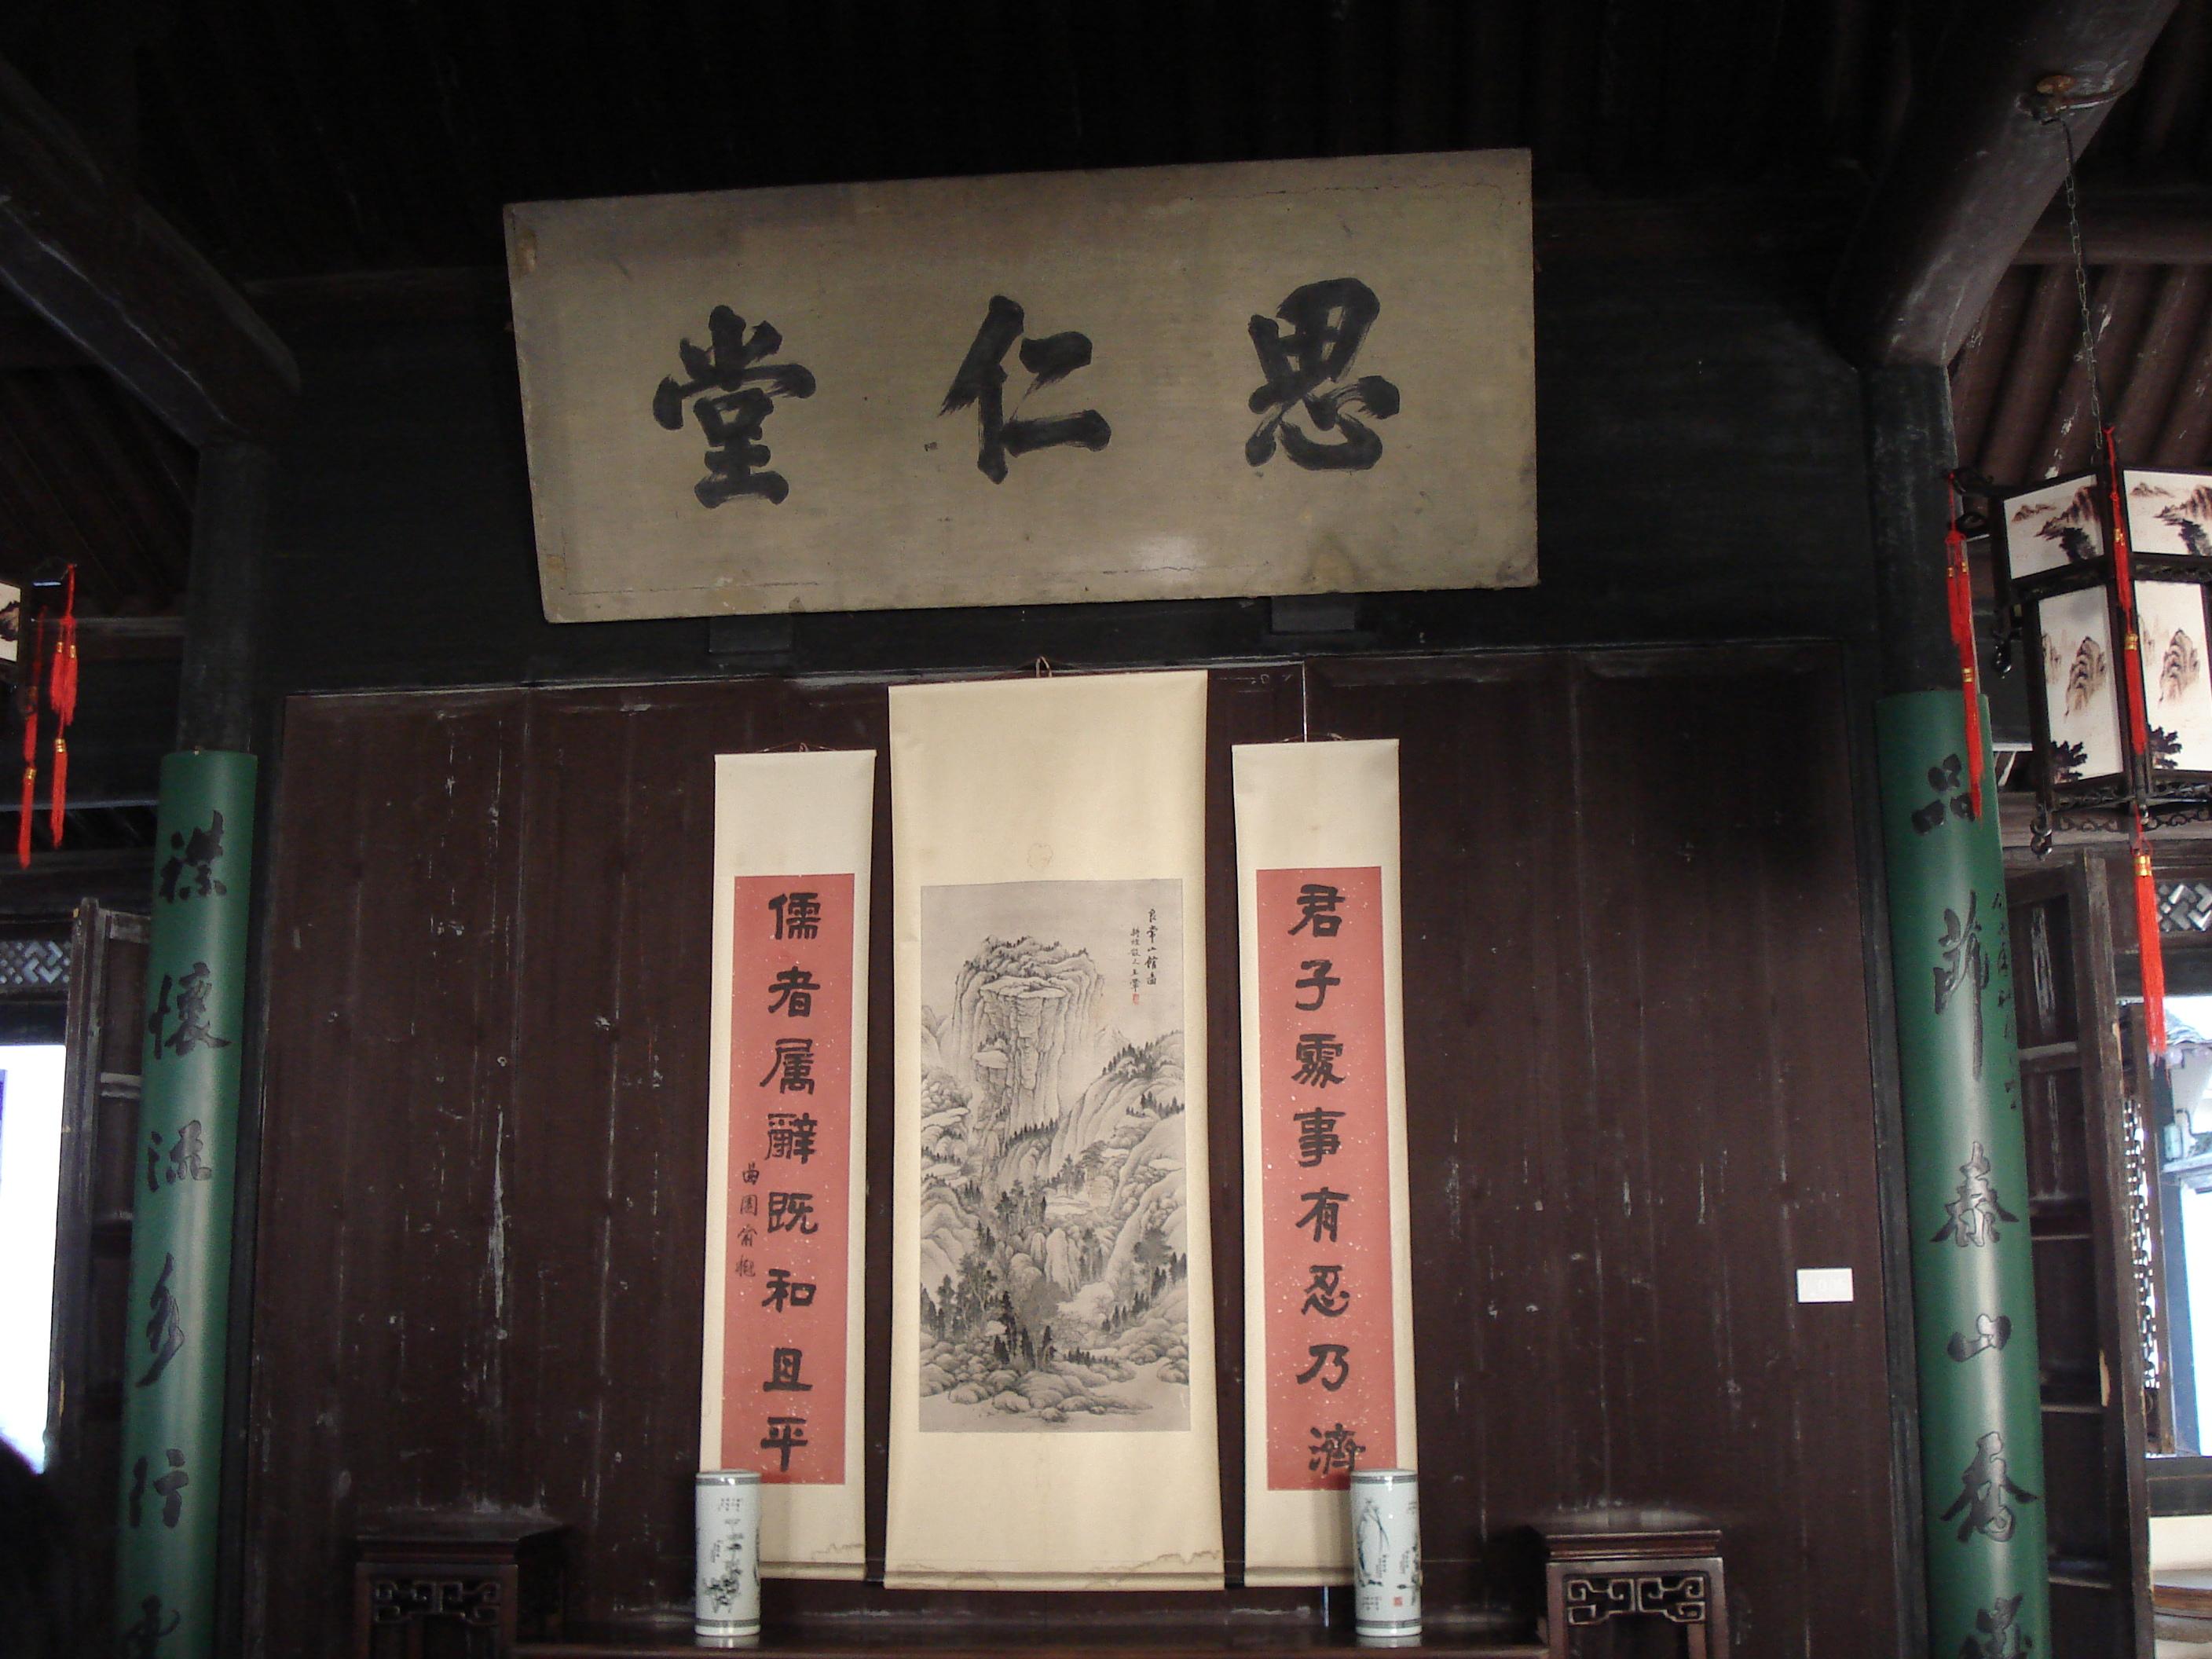 思仁堂
君子處事有忍乃濟
儒者属辭既和且平
曲園俞樾
品節泰山秀
襟懷流水行雲